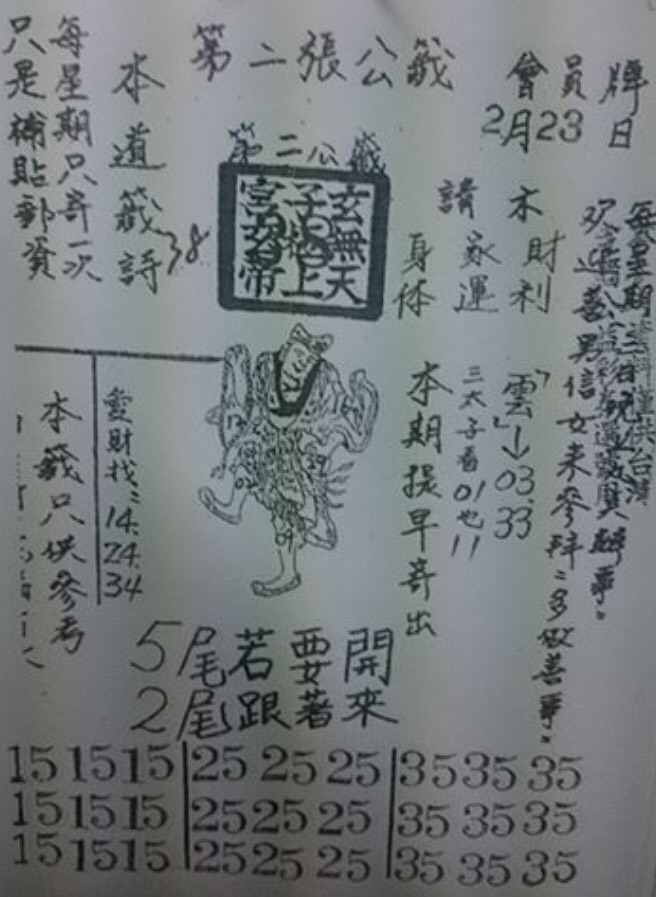 第二張公籤
會員牌
2月23日
每星期只寄一次
只是補貼郵資
本道籤詩38
第二公籤
玄無天
子 上
宮 帝
木財利
請家運
身体
本期提早寄出
三太子看01也11
「雲」→03.33
善男信女來參拜:多做善事。
愛財找:14.24.34
本籤只供參考
5尾若要開
2尾跟著來
15 15 15 25 25 25 35 35 35
15 15 15 25 25 25 35 35 35
15 15 15 25 25 25 35 35 35